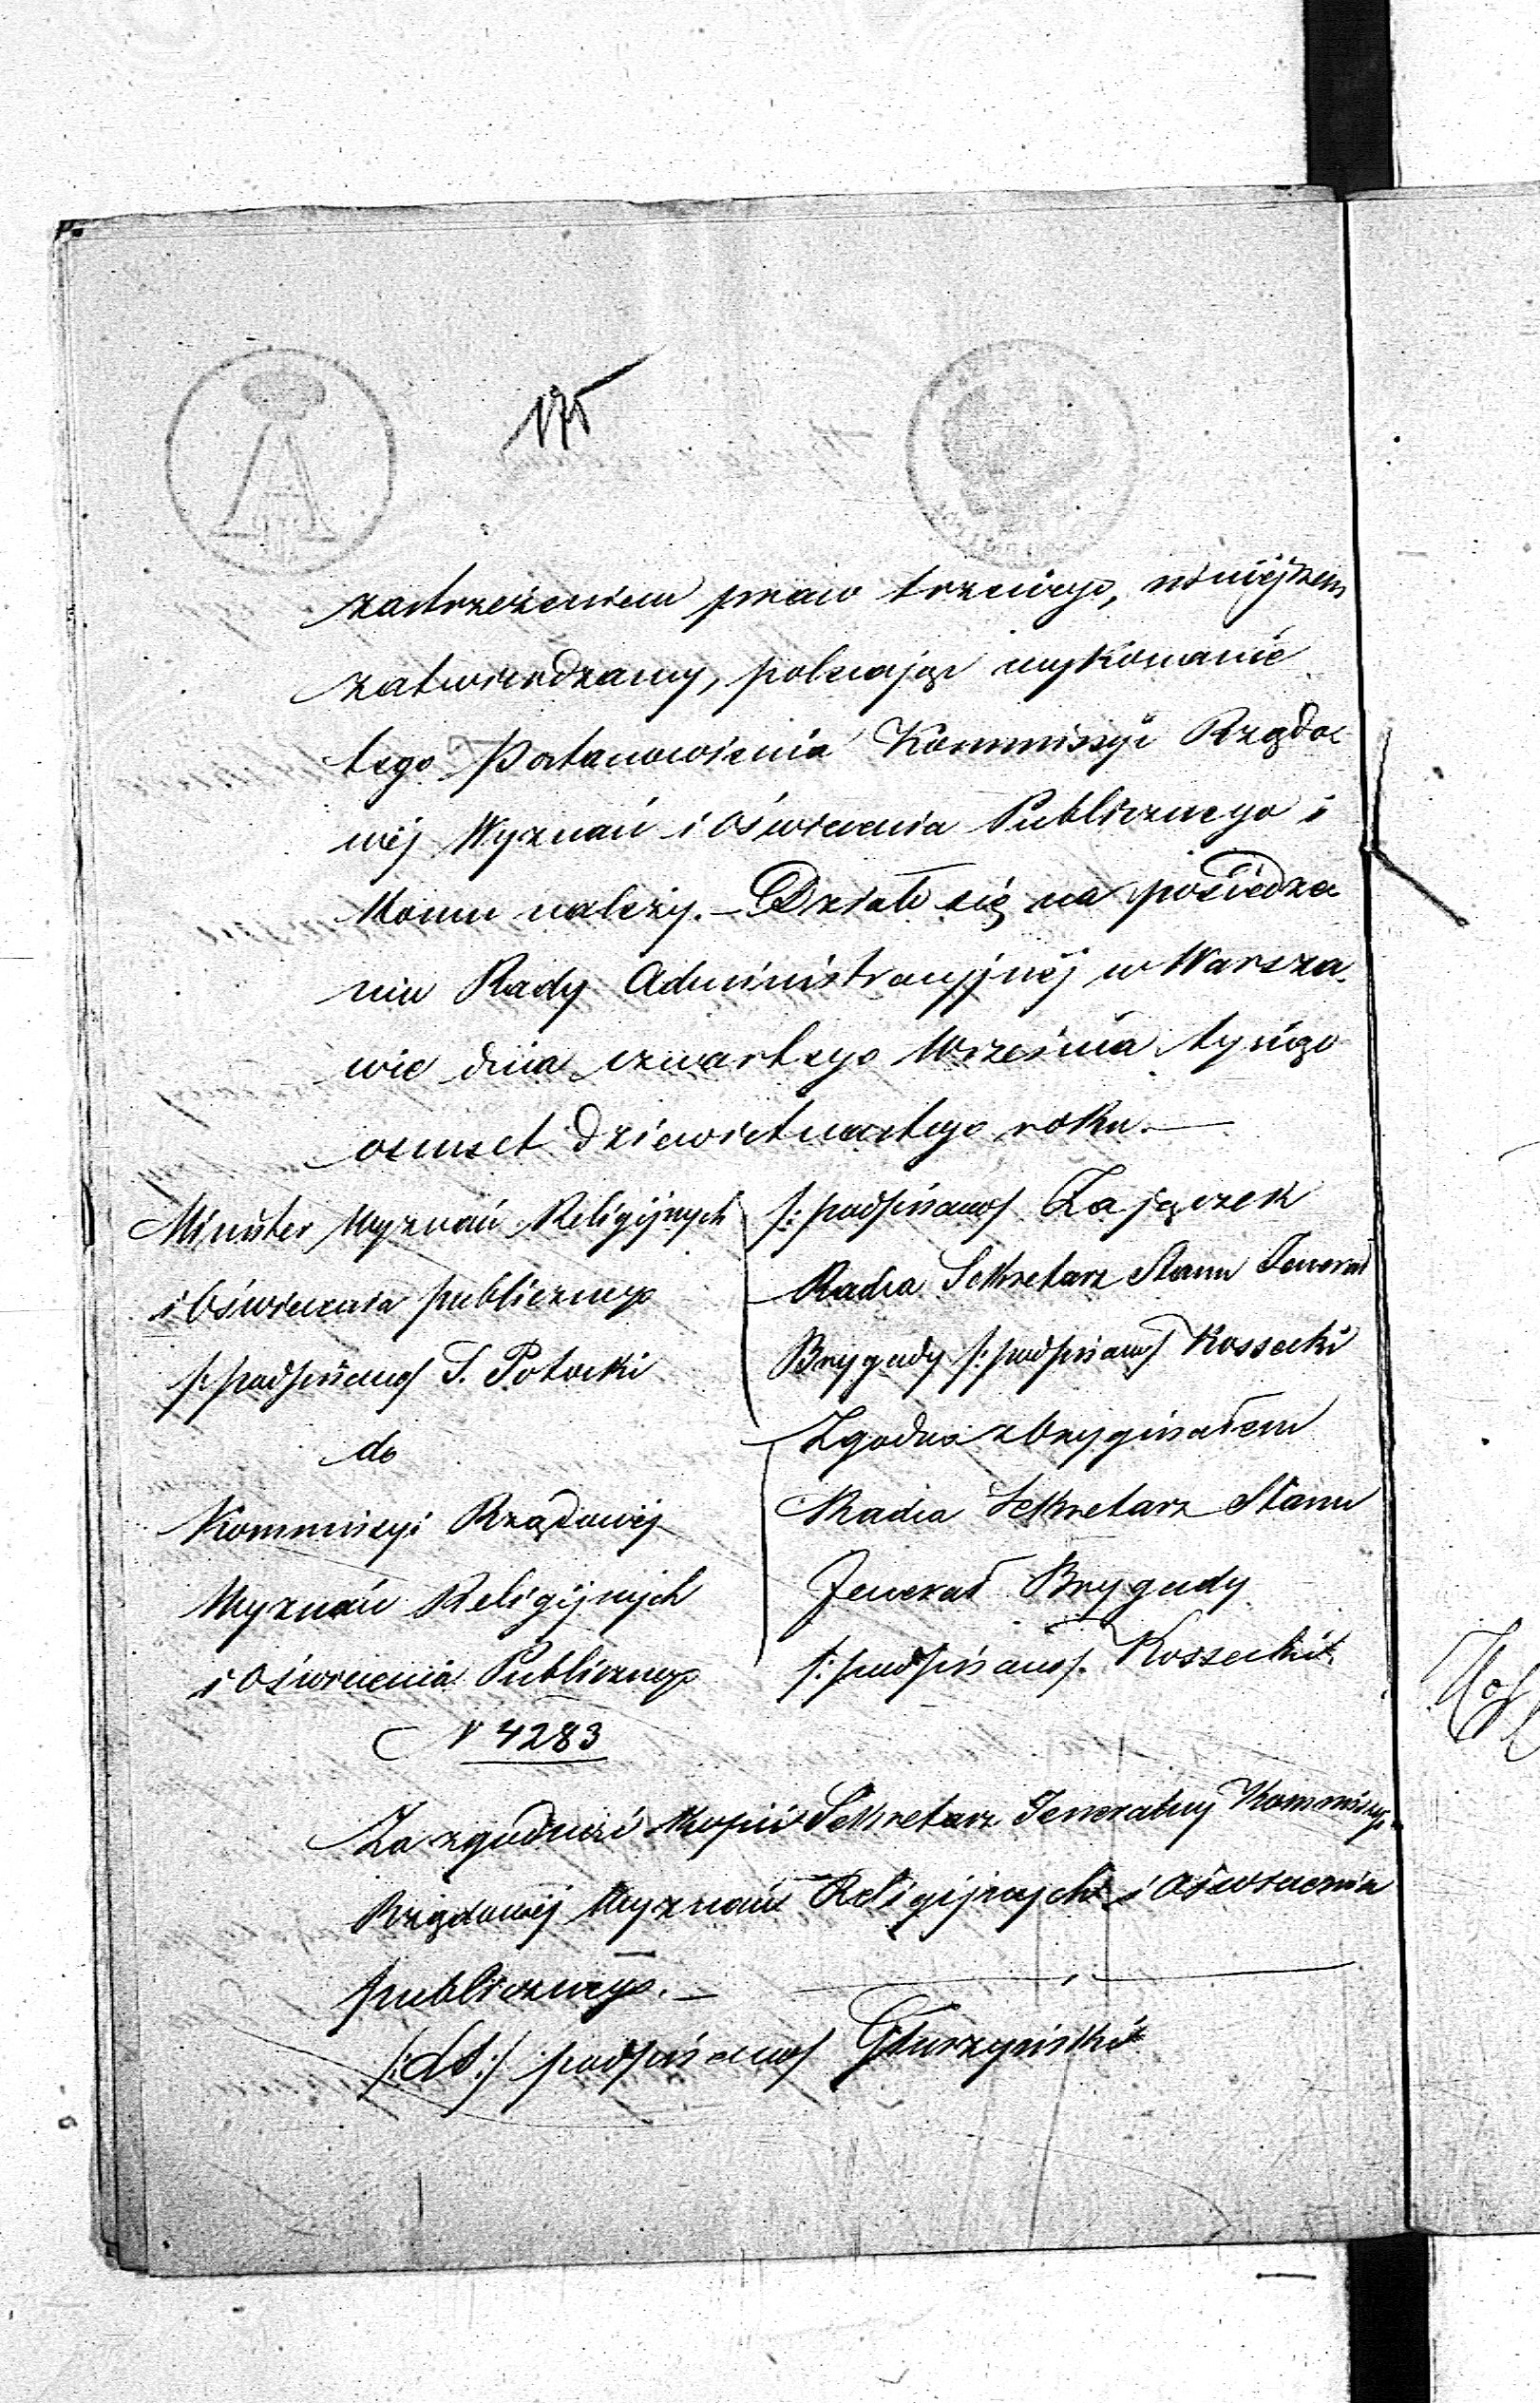 175
zastrzeżeniem praw trzeciego, niniejszem
zatwierdzamy, polecając wykonanie
tego Postanowienia Kommissyi Rządo-
wéj Wyznań i Oświecenia Publicznego i
komu należy. – Działo się na posiedze
niu Rady Administracyjnéj w Warsza
wie dnia czwartego Września tysiąc
osmset dziewietnastego roku. —
Minister Wyznań Religijnych
i Oświecenia publicznego
/:podpisano/ S. Potocki
do
Kommissyi Rządowéj
Wyznań Religijnych
i Oświecenia Publicznego
N 4283
/:podpisano/ Zajączek
Radca Sekretarz Stanu Jenerał
Brygady /:podpisano/ Kossecki
Zgodno z Oryginałem
Radca Sekretarz Stanu
Jenerał Brygady
/:podpisano/. Kossecki
Za zgodność kopii Sekretarz Jeneralny Kommissyi
Rządowéj Wyznań Religijnych i Oświecenia
publicznego. —
podpisano/